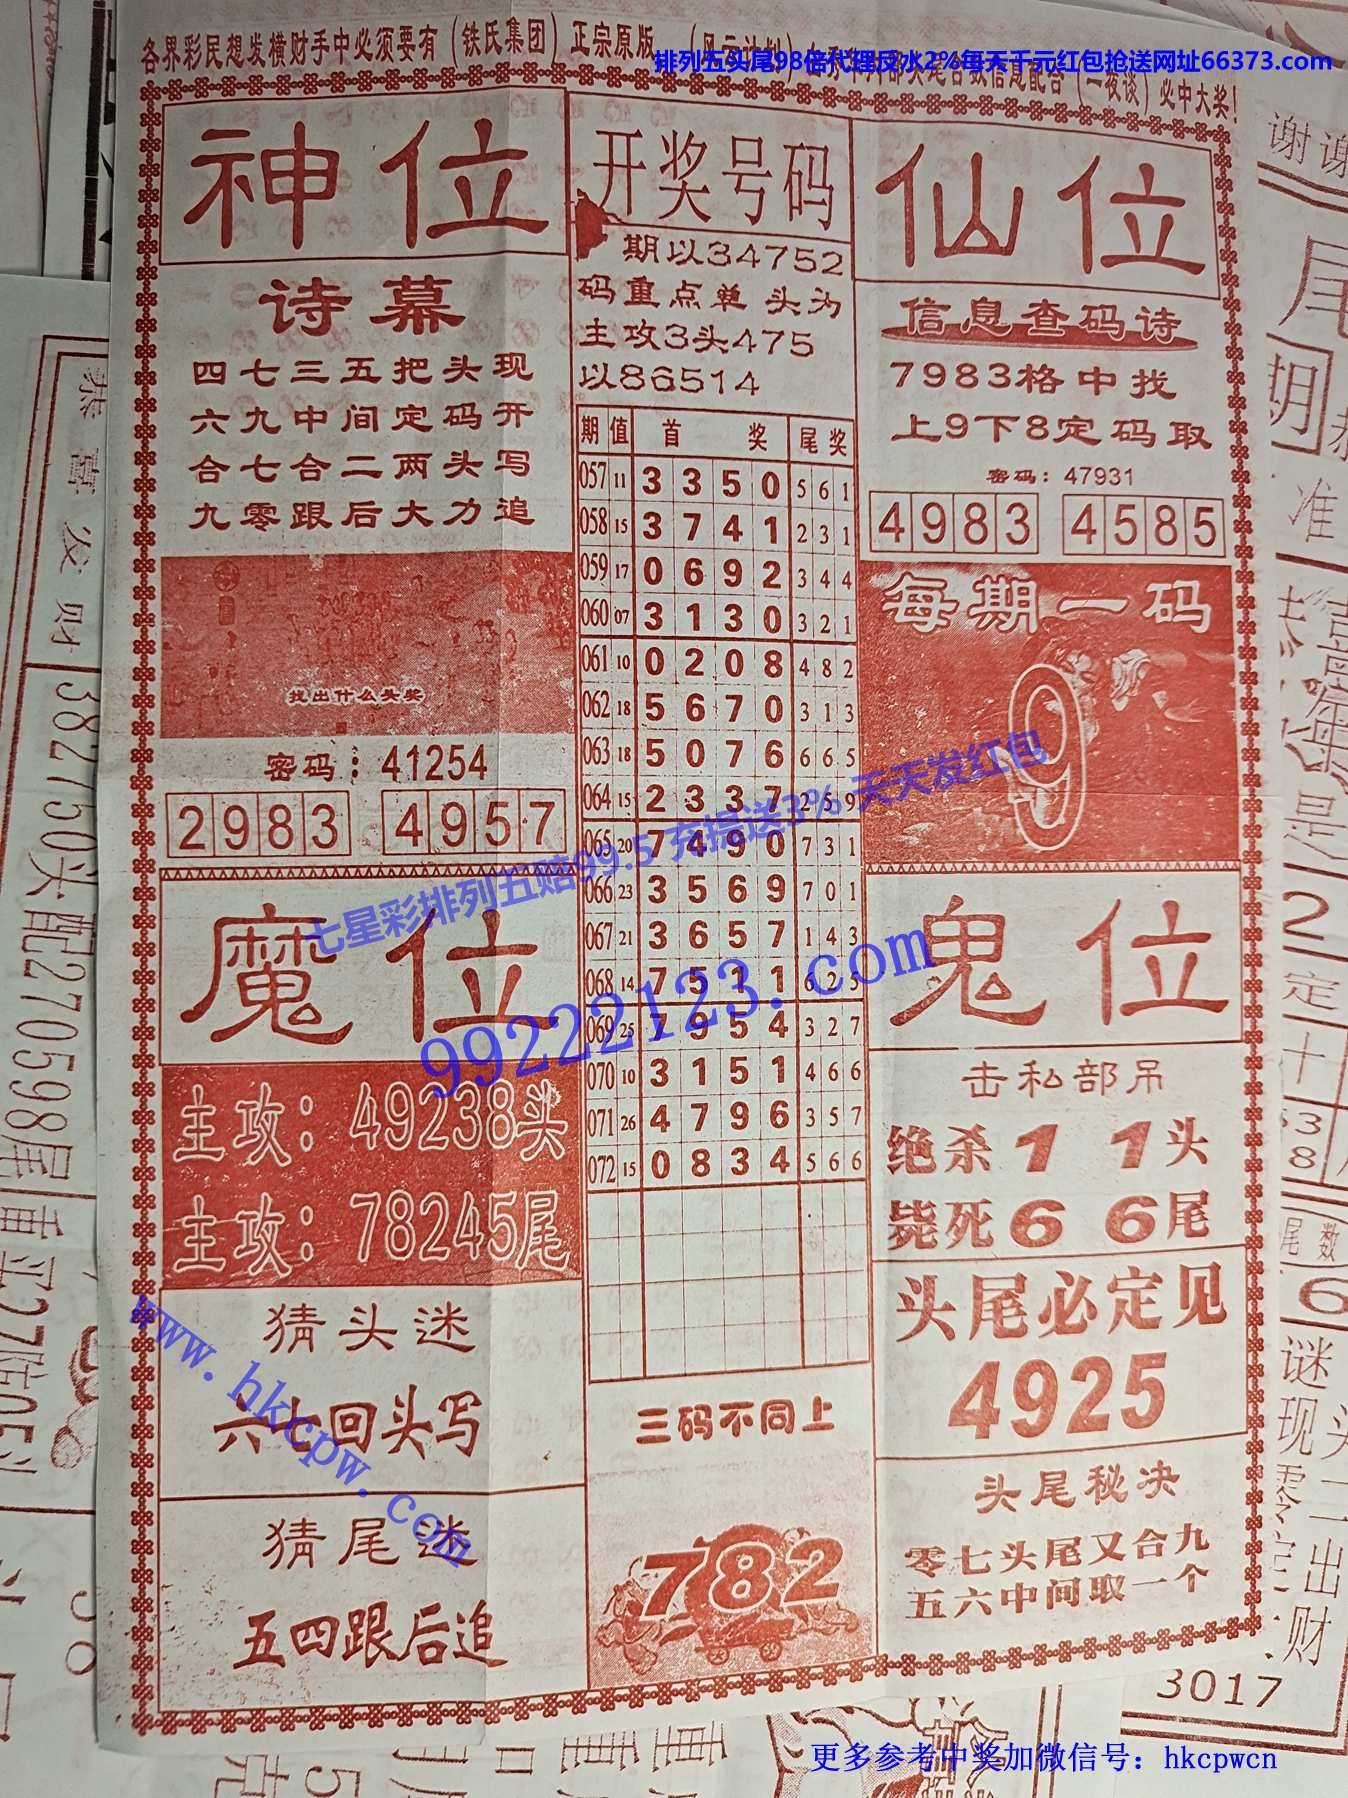 各界彩民想发横财手中必须要有（铁氏集团）正宗原版
必中大奖！
排列五头尾98倍代理反水2%每天千元红包抢送网址66373.com
神位
诗幕
四七三五把头现
六九中间定码开
合七合二两头写
九零跟后大力追
找出什么头奖
密码：41254
2983 4957
开奖号码
期以34752
码重点单 头为
主攻3头475
以86514
期 值 首奖 尾奖
057 11 3 3 5 0 5 6 1
058 15 3 7 4 1 2 3 1
059 17 0 6 9 2 3 4 4
060 07 3 1 3 0 3 2 1
061 10 0 2 0 8 4 8 2
062 18 5 6 7 0 3 1 3
063 18 5 0 7 6 6 6 5
064 15 2 3 3 7 2 5 9
065 20 7 4 9 0 7 3 1
066 23 3 5 6 9 7 0 1
067 21 3 6 5 7 1 4 3
068 14 7 5 1 1 6 2 5
069 25 7 9 5 4 3 2 7
070 10 3 1 5 1 4 6 6
071 26 4 7 9 6 3 5 7
072 15 0 8 3 4 5 6 6
三码不同上
782
仙位
信息查码诗
7983格中找
上9下8定码取
密码：47931
4983 4585
每期一码
9
七星彩排列五赔99.5 充提送3% 天天发红包
99222123.com
魔位
主攻：49238头
主攻：78245尾
猜头迷
六七回头写
猜尾迷
五四跟后追
www.hkcpw.com
鬼位
击私部吊
绝杀1 1头
毙死6 6尾
头尾必定见
4925
头尾秘决
零七头尾又合九
五六中间取一个
恭喜发财
382750头配270598尾
3017
更多参考中奖加微信号：hkcpwcn